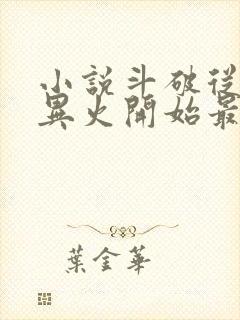 小說斗破從
異火開始最
葉金華